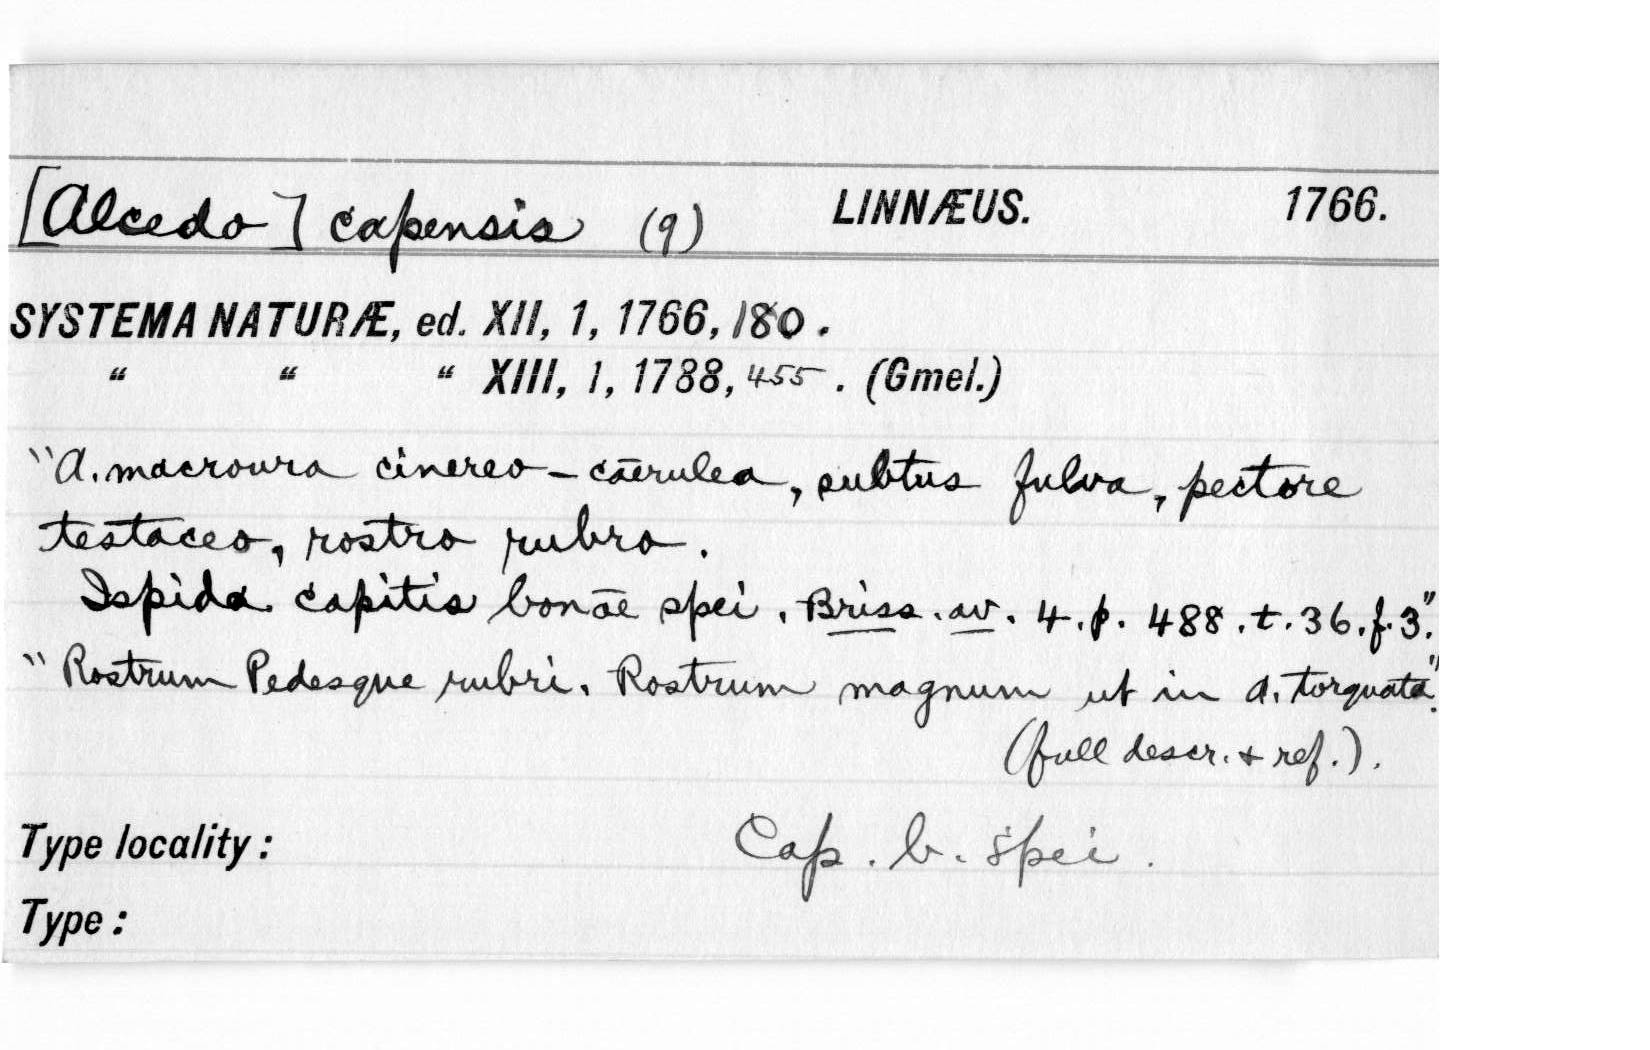 [Alcedo] capensis (9) LINNÆUS. 1766.
SYSTEMA NATURÆ, ed. XII, 1, 1766, 180.
“ “ “ XIII, 1, 1788, 455. (Gmel.)
"A. macroura cinereo-cærulea, subtus fulva, pectore
testaceo, rostro rubro.
Ispida capitis bonæ spei. Briss. av. 4. p. 488. t. 36. f. 3".
"Rostrum Pedesque rubri. Rostrum magnum ut in A. torquata."
(full descr. + ref.).
Type locality: Cap. b. spei.
Type: